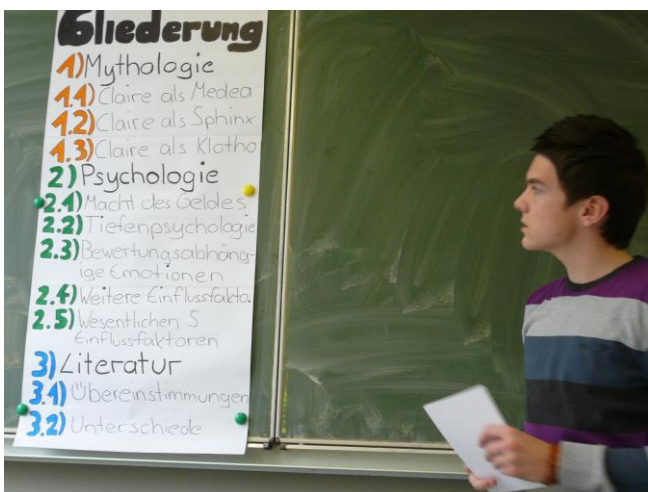 Gliederung
1) Mythologie
1.1) Claire als Medea
1.2) Claire als Sphinx
1.3) Claire als Klotho
2) Psychologie
2.1) Macht des Geldes
2.2) Tiefenpsychologie
2.3) Bewertungsabhäng-
ige Emotionen
2.4) Weitere Einflussfakto.
2.5) Wesentlichen 5
Einflussfaktoren
3) Literatur
3.1) Übereinstimmungen
3.2) Unterschiede